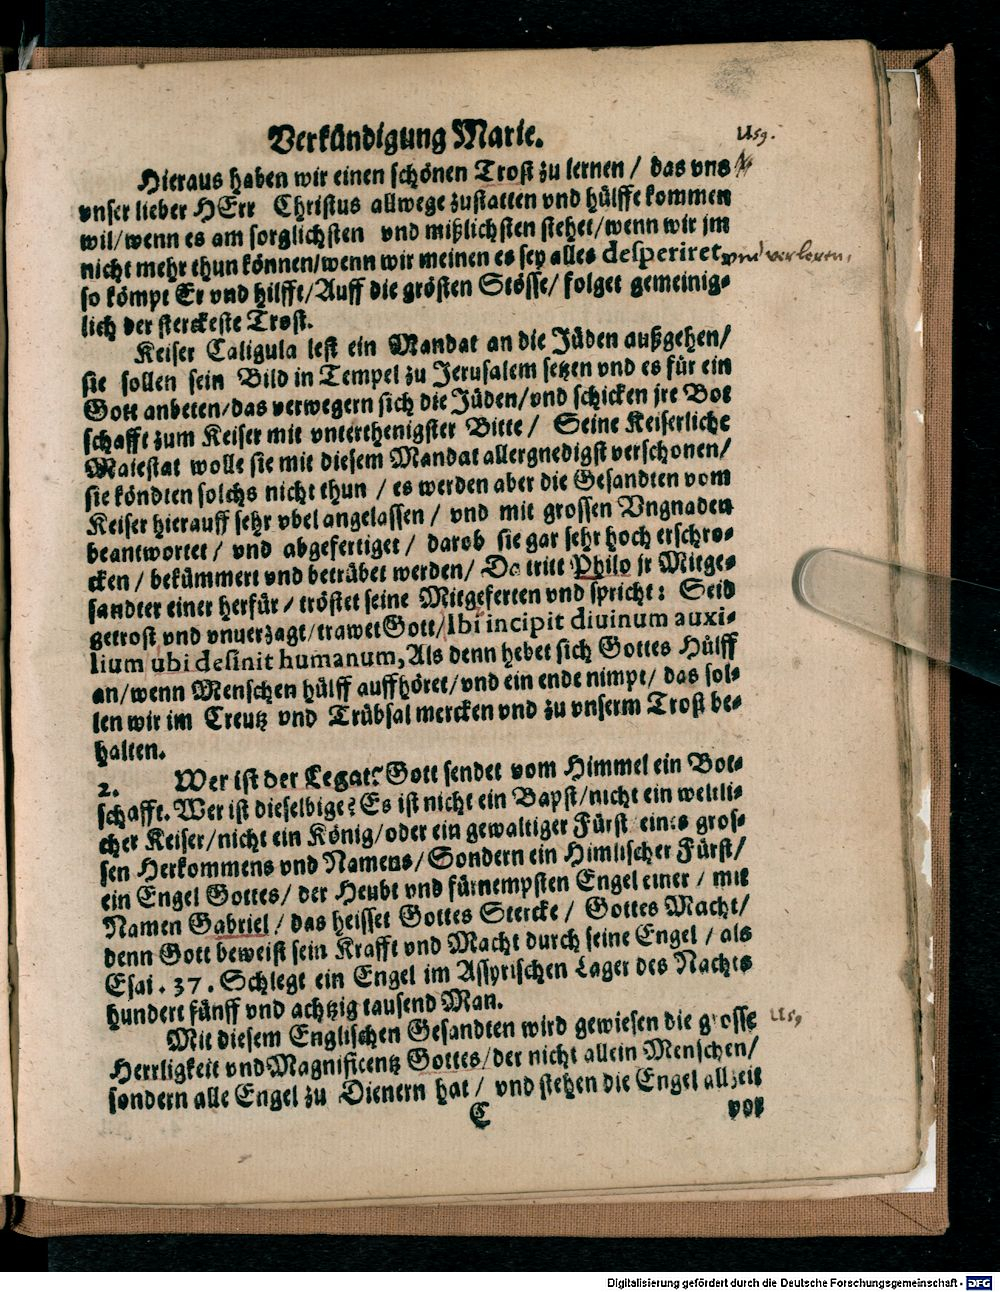 Verkündigung Marie.
Usg.
Hieraus haben wir einen schönen Trost zu lernen / das vns
vnser lieber HErr Christus allwege zustatten vnd hülffe kommen
wil/wenn es am sorglichsten vnd mißlichsten stehet/wenn wir jm
nicht mehr thun können/wenn wir meinen es sey alles desperiret, vnd verloren,
so kömpt Er vnd hilfft/Auff die grösten Stösse/ folget gemeinig-
lich der sterckeste Trost.
Keiser Caligula lest ein Mandat an die Jüden außgehen/
sie sollen sein Bild in Tempel zu Jerusalem setzen vnd es für ein
Gott anbeten/das verwegern sich die Jüden/vnd schicken jre Bot
schafft zum Keiser mit vnterthenigster Bitte / Seine Keiserliche
Maiestat wolle sie mit diesem Mandat allergnedigst verschonen/
sie köndten solchs nicht thun / es werden aber die Gesandten vom
Keiser hierauff sehr vbel angelassen / vnd mit grossen Vngnaden
beantwortet / vnd abgefertiget / darob sie gar sehr hoch erschro-
cken / bekümmert vnd betrübet werden/ Da tritt Philo jr Mitge-
sandter einer herfür / tröstet seine Mitgeferten vnd spricht: Seid
getrost vnd vnuerzagt/trawet Gott/Ibi incipit diuinum auxi-
lium ubi desinit humanum, Als denn hebet sich Gottes Hülff
an/wenn Menschen hülff auffhöret/vnd ein ende nimpt/ das sol-
len wir im Creutz vnd Trübsal mercken vnd zu vnserm Trost be-
halten.
2. Wer ist der Legat? Gott sendet vom Himmel ein Bot-
schafft. Wer ist dieselbige? Es ist nicht ein Bapst/nicht ein weltli-
cher Keiser/nicht ein König/oder ein gewaltiger Fürst eines gros-
sen Herkommens vnd Namens/Sondern ein Himlischer Fürst/
ein Engel Gottes/ der Heubt vnd fürnempsten Engel einer / mit
Namen Gabriel / das heisset Gottes Stercke / Gottes Macht/
denn Gott beweist sein Krafft vnd Macht durch seine Engel / als
Esai. 37. Schlegt ein Engel im Assyrischen Lager des Nachts
hundert fünff vnd achtzig tausend Man.
Mit diesem Englischen Gesandten wird gewiesen die grosse
Usg
Herrligkeit vnd Magnificentz Gottes/der nicht allein Menschen/
sondern alle Engel zu Dienern hat / vnd stehen die Engel allzeit
C
vor
Digitalisierung gefördert durch die Deutsche Forschungsgemeinschaft - DFG